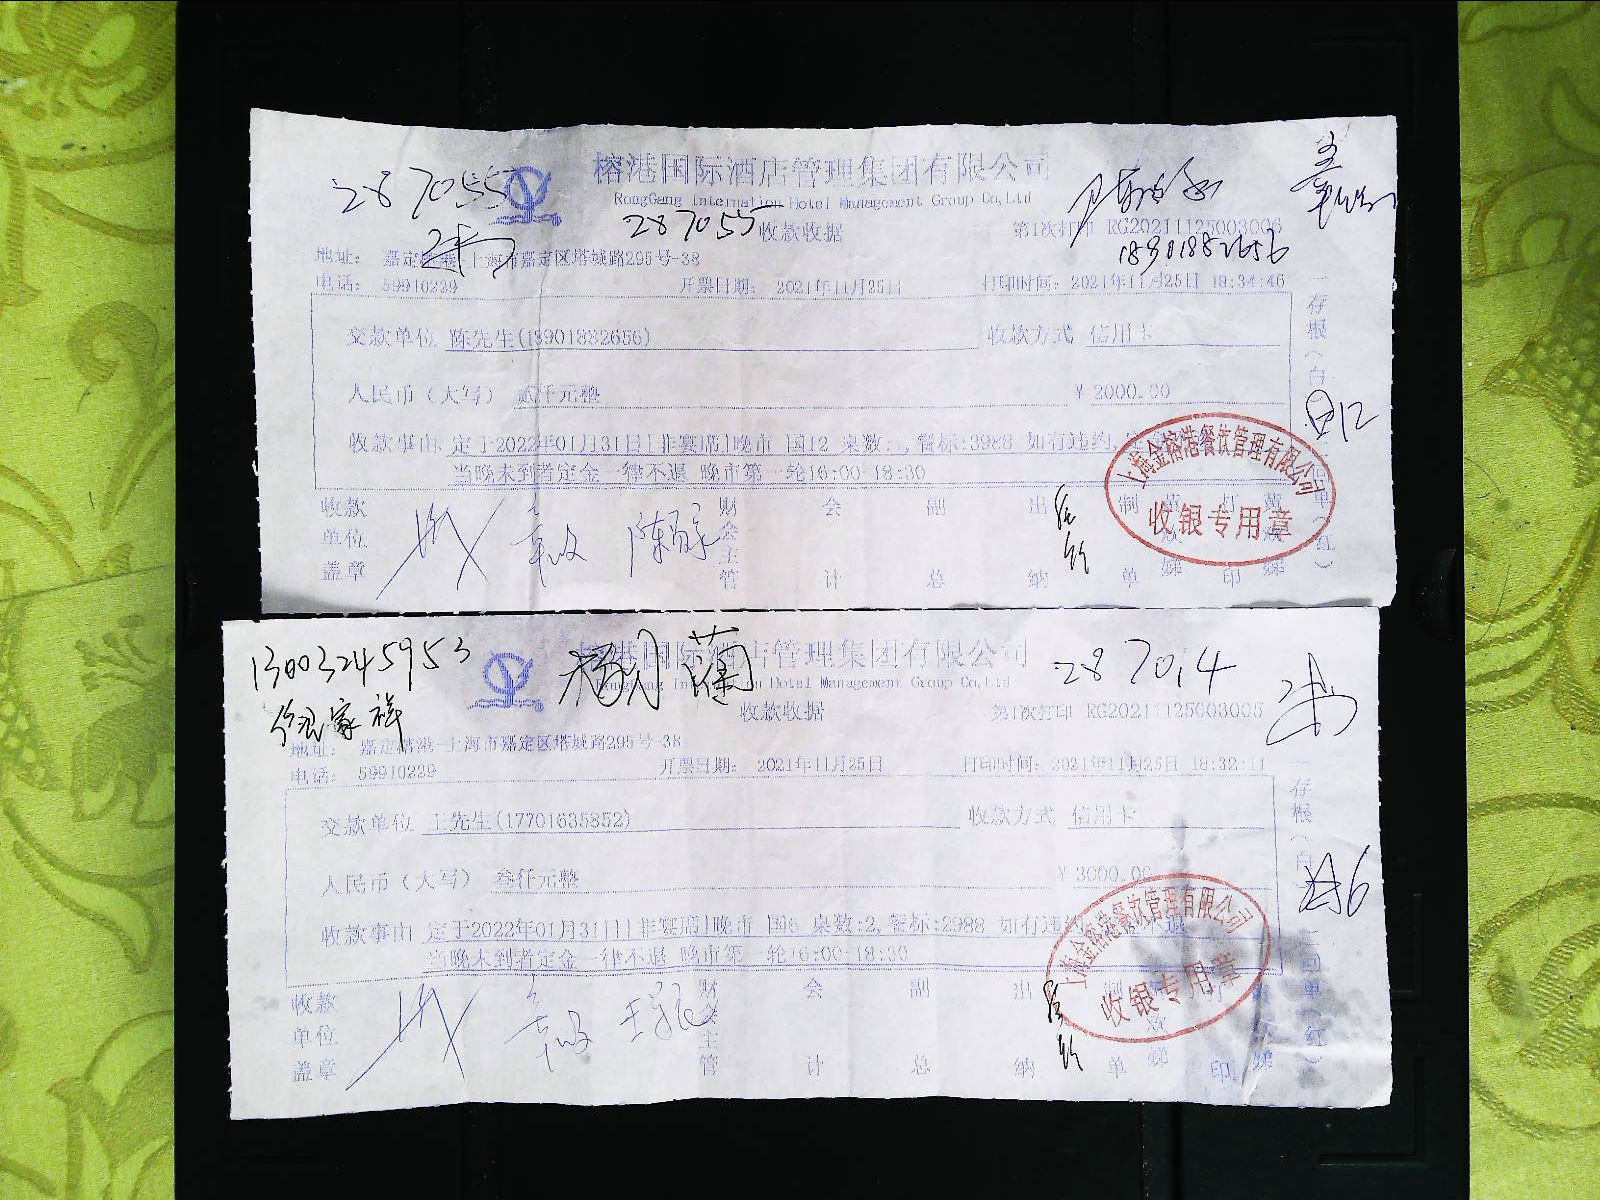 榕港国际酒店管理集团有限公司
RongGang Internation Hotel Management Group Co,Ltd
287055
287055
收款收据
第1次打印 RG20211125003006
18901882656
地址: 嘉定榕港-上海市嘉定区塔城路295号-38
电话: 59910229 开票日期: 2021年11月25日 打印时间: 2021年11月25日 18:34:46
交款单位 陈先生(18901882656) 收款方式 信用卡
人民币(大写) 贰仟元整 ¥ 2000.00
收款事由 定于2022年01月31日[非宴席]晚市 国12 桌数: 餐标:3988 如有违约,
当晚未到者定金一律不退 晚市第一轮16:00-18:30
国12
收款单位盖章 财会主管 会计 副总 出纳 制单 打印
存根(白) 单(红)
上海金榕港餐饮管理有限公司
收银专用章
13003245953
徐 家祥
杨月兰
榕港国际酒店管理集团有限公司
RongGang Internation Hotel Management Group Co,Ltd
287014
收款收据
第1次打印 RG20211125003005
地址: 嘉定榕港-上海市嘉定区塔城路295号-38
电话: 59910229 开票日期: 2021年11月25日 打印时间: 2021年11月25日 18:32:11
交款单位 王先生(17701635852) 收款方式 信用卡
人民币(大写) 叁仟元整 ¥ 3000.00
收款事由 定于2022年01月31日[非宴席]晚市 国6 桌数:2,餐标:2988 如有违约
当晚未到者定金一律不退 晚市第一轮16:00-18:30
收款单位盖章 财会主管 会计 副总 出纳 制单 打印
存根(白) 二回单(红)
上海金榕港餐饮管理有限公司
收银专用章